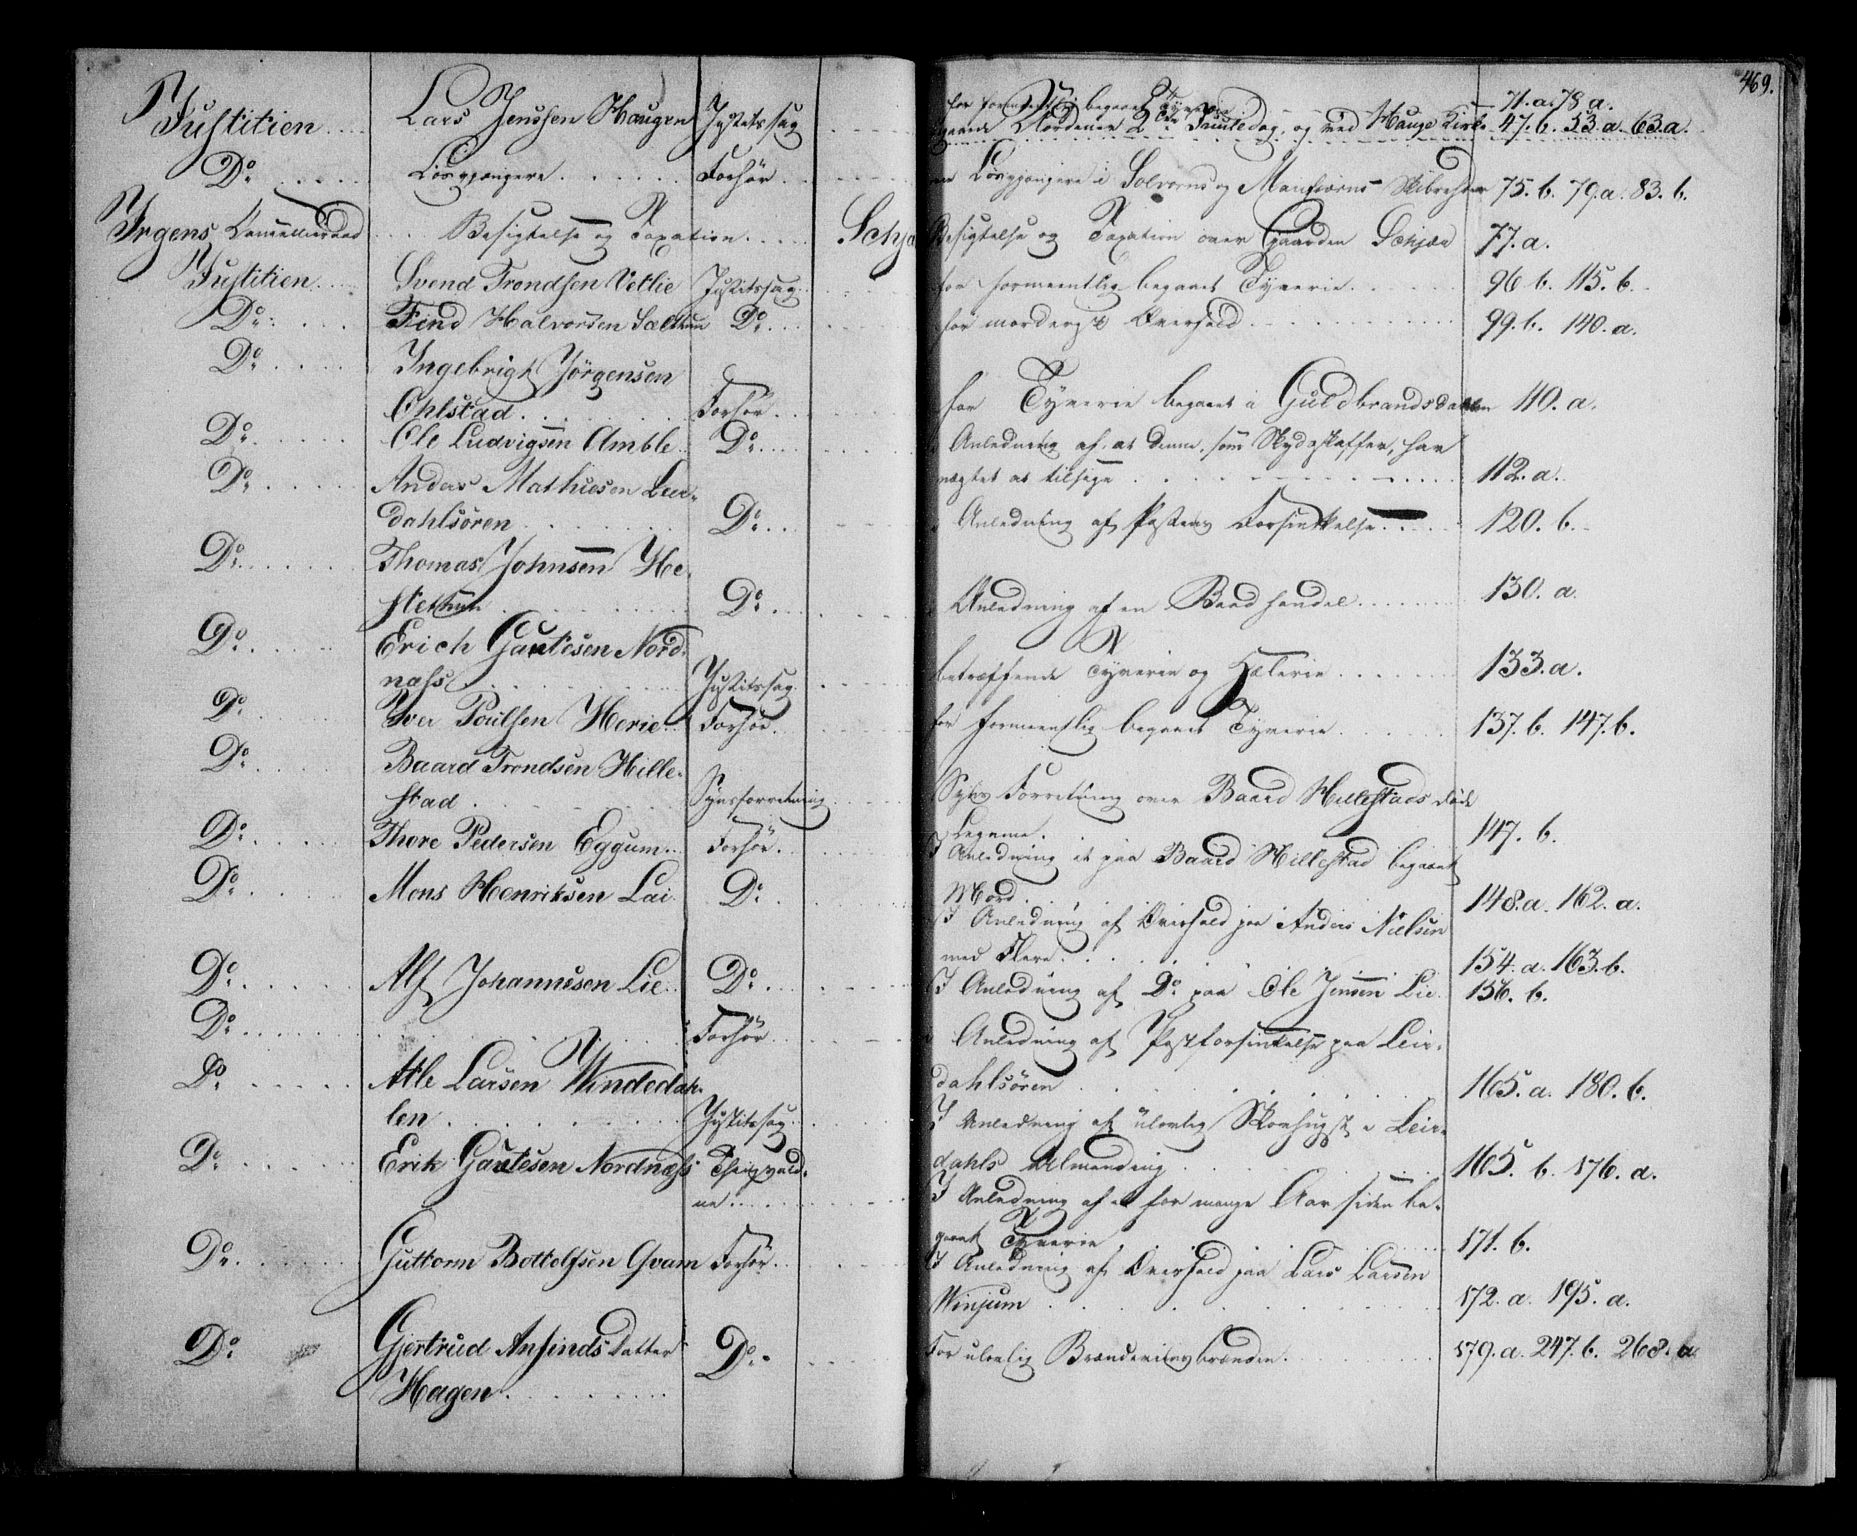 469.
Justitien .... Lars Jenssen Haugen Justitssag
for formeentlig begaaet Tyverie 71. a. 78 a.
2den Juuledag, og ved Hauge Kirke 47. b. 53. a. 63 a.
Do .... Løsgjængere ...... Forhör ...
Løsgjængere i Solvorns og Marifiærens Skibreder 75. b. 79. a. 83. b.
Irgens Kammerraad .. Besigtelse og Taxation .... Schjæ
Besigtelse og Taxation over Gaarden Schjæn 77. a.
Justitien ... Svend Trondsen Vetlie Justitssag
for formeentlig begaaet Tyverie ..... 96 b. 115. b.
Do .... Find Halvorsen Sælthun Do ...
for mordergt Overfald ........ 99. b. 140. a.
Do .... Ingebrigt Jörgensen
Ohlstad ....... Forhör ...
for Tyverie begaaet i Guldbrandsdalen 110. a.
Do ..... Ole Ludvigsen Amble .. Do ....
Anledning af at denne, som Skydsskaffer, har
nægtet at tilsige ........ 112. a.
Do ..... Anders Mathiesen Leir-
dahlsören ....... Do ...
Anledning af Postens Forsinkelse ..... 120. b.
Do ...... Thomas Johnsen He-
stethun ........ Do ...
Anledning af en Baadhandel ...... 130. a.
Do ..... Erich Gautesen Nord-
næss ........ Justitssag
betræffende Tyverie og Hælerie ...... 133. a.
Do .... Iver Poulsen Herie .. Forhör.
for formeentlig begaaet Tyverie ..... 137. b. 147. b.
Do ..... Baard Trondsen Hille-
stad ....... Synsforretning
Syns Forretning over Baard Hillestads døde
Legeme. 147. b.
Do ..... Thore Pedersen Eggum .. Forhör.
I Anledning et paa Baard Hillestad begaaet
Mord ........ 148. a. 162. a.
Do ... Mons Henriksen Lai Do
I Anledning af Overfald paa Anders Nielsen
med Flere ....... 154. a. 163. b.
Do ..... Alf Johannesen Lie .. Do ...
I Anledning af Do paa Ole Jensen Lie. 156. b.
Do ............ Forhör
Anledning af Postforsinkelse paa Leir-
dahlsören ....... 165. a. 180. b.
Do ..... Atle Larsen Windedah-
len ........ Justitssag
I Anledning af ulovlig Skovhugst i Leir-
dahls Almending ...... 165. b. 176. a.
Do ..... Erik Gautesen Nordnæss Thingvid-
ne ......
I Anledning af et for mange Aar siden be-
gaaet Tyverie ....... 171. b.
Do ..... Guttorm Bottolfsen Qvam Forhör ..
I Anledning af Overfald paa Lars Larsen
Winjum ......... 172. a. 195. a.
Do Gjertrud Anfinds Datter Do.
Hagen .........
For ulovlig Brændeviinsbrænden ...... 179. a. 247. b. 268. a.